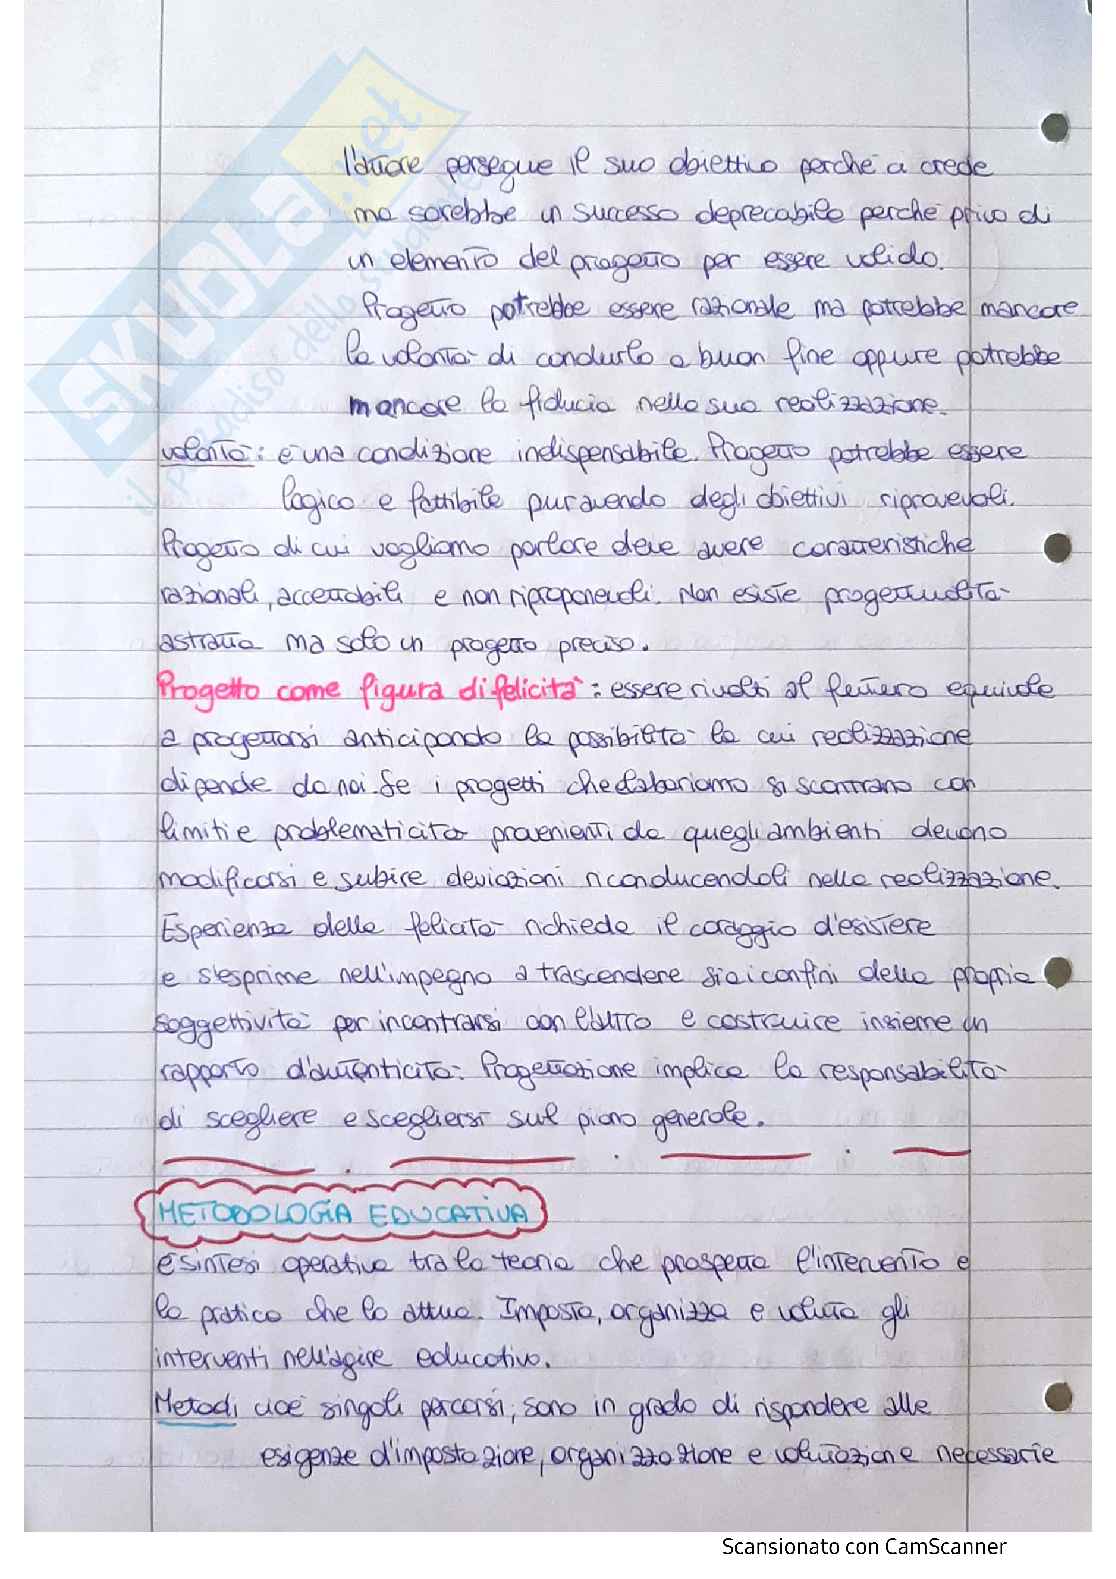 l'attore persegue il suo obiettivo perché ci crede
ma sarebbe un successo deprecabile perché privo di
un elemento del progetto per essere valido.
Progetto potrebbe essere razionale ma potrebbe mancare
la volontà di condurlo a buon fine oppure potrebbe
mancare la fiducia nella sua realizzazione.
volontà: è una condizione indispensabile. Progetto potrebbe essere
logico e fattibile pur avendo degli obiettivi riprovevoli.
Progetto di cui vogliamo parlare deve avere caratteristiche
razionali, accettabili e non riproponevoli. Non esiste progettualità
astratta ma solo un progetto preciso.
Progetto come figura di felicità: essere rivolti al futuro equivale
a progettarsi anticipando la possibilità la cui realizzazione
dipende da noi. Se i progetti che elaboriamo si scontrano con
limiti e problematicità provenienti da quegli ambienti devono
modificarsi e subire deviazioni riconducendoli nella realizzazione.
Esperienza della felicità richiede il coraggio d'esistere
e s'esprime nell'impegno a trascendere sia i confini della propria
soggettività per incontrarsi con l'altro e costruire insieme un
rapporto d'autenticità. Progettazione implica la responsabilità
di scegliere e scegliersi sul piano generale.
METODOLOGIA EDUCATIVA
è sintesi operativa tra la teoria che prospetta l'intervento e
la pratica che lo attua. Imposta, organizza e valuta gli
interventi nell'agire educativo.
Metodi cioè singoli percorsi, sono in grado di rispondere alle
esigenze d'impostazione, organizzazione e valutazione necessarie
SKUOLA.net
il paradiso dello studente
Scansionato con CamScanner